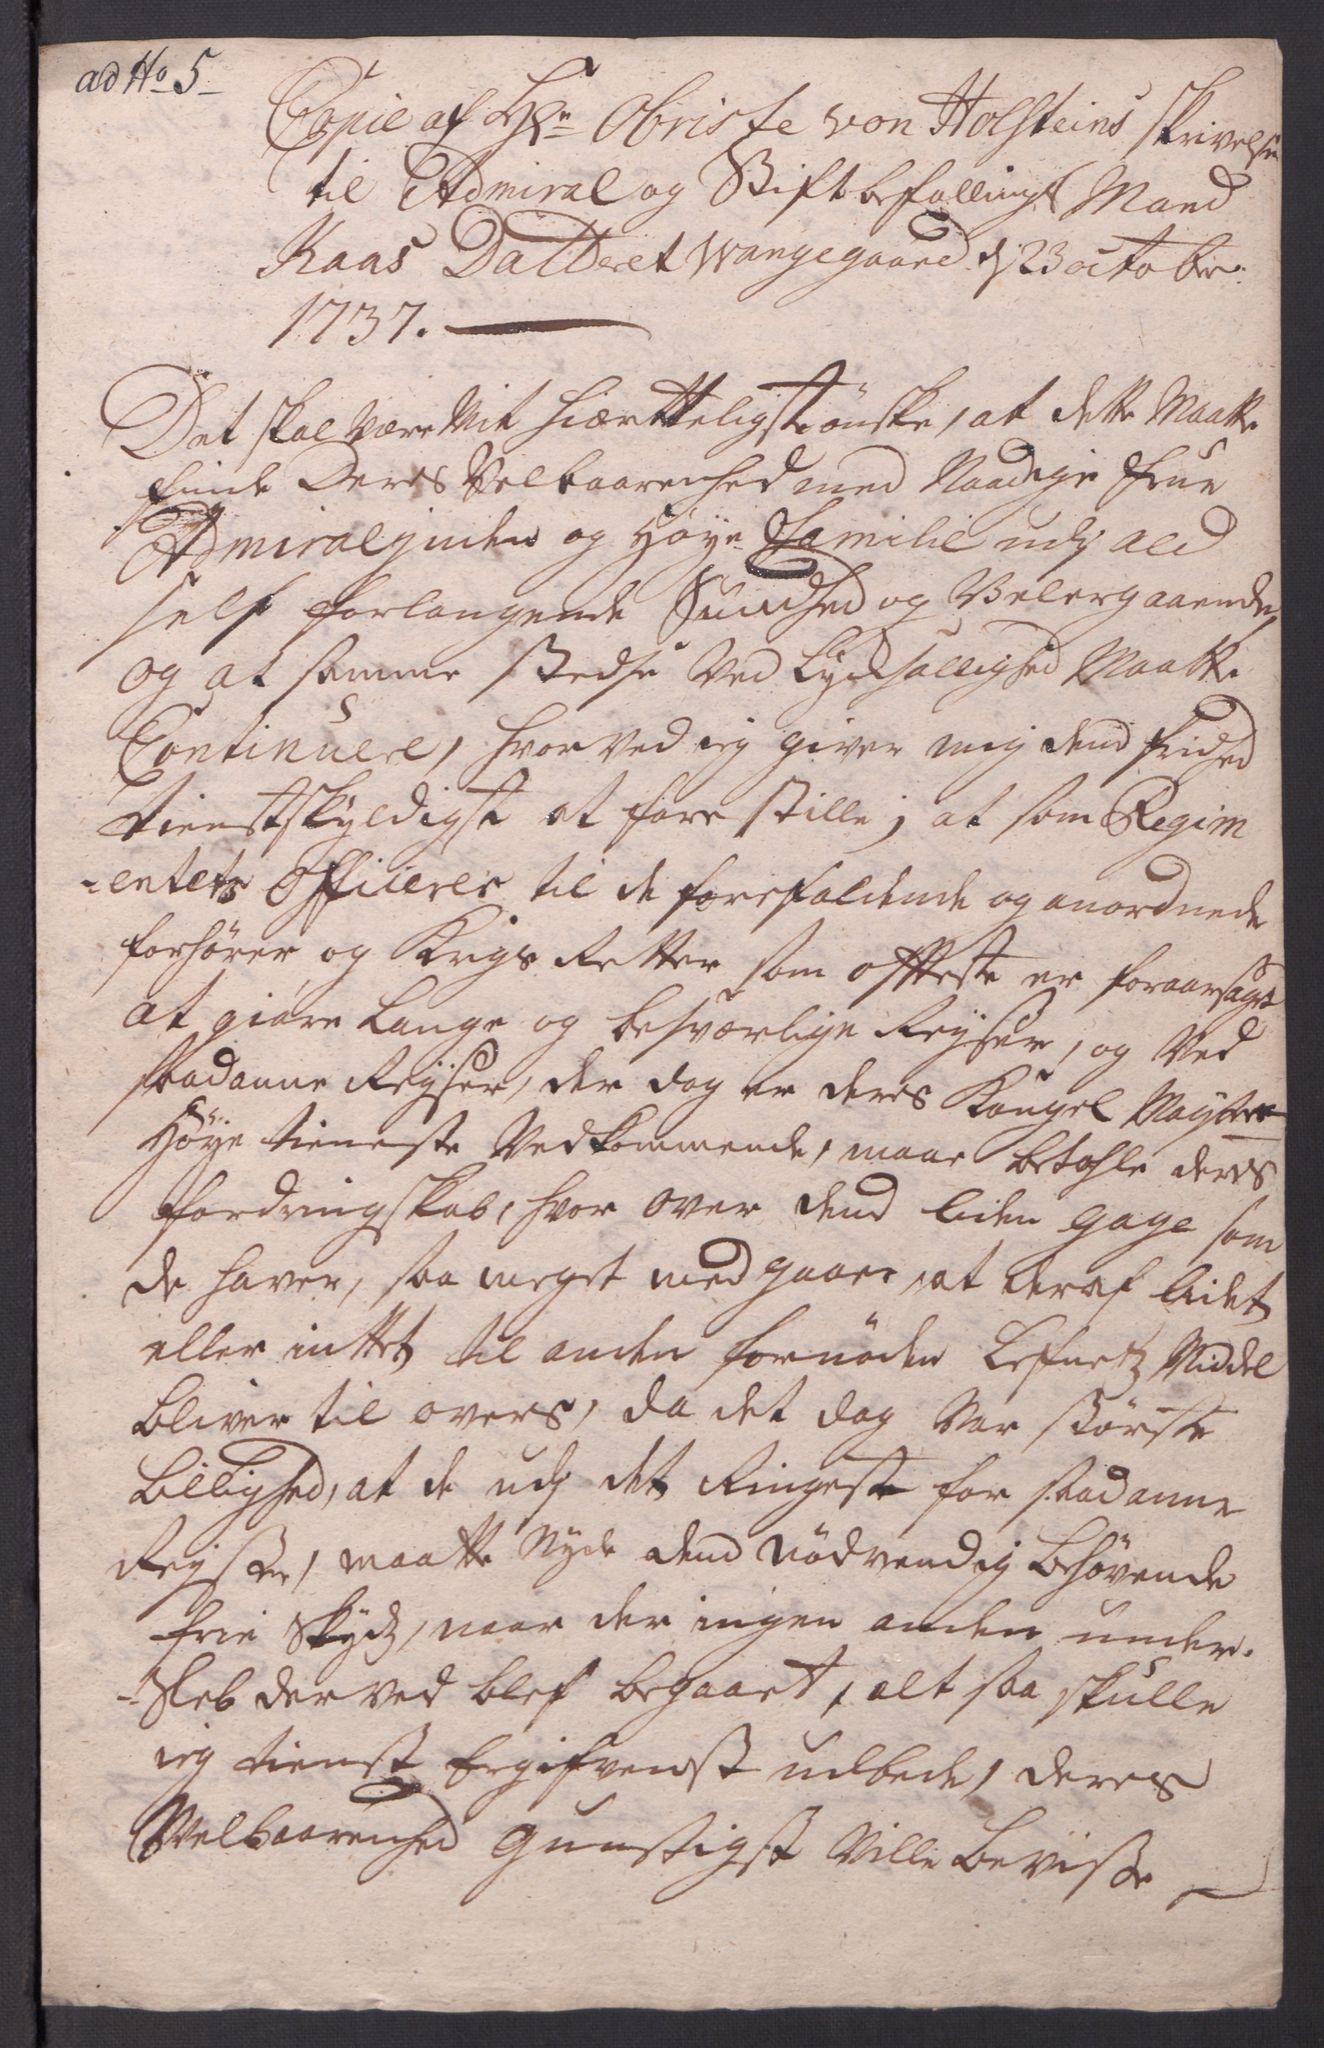 ad No 5
Copie af Hrn Obriste von Holsteins skrivelse
til Admiral og Stiftbefallings Mand
Kaas Datteret Wangegaard d 23 octobr.
1737.
Det skal være Mit hiertteligste ønske, at dette Maatte
finde Deres Velbaarenhed med Naadige Frue
Admiralinden og Høye Familie udj ald
self forlangende Sundhed og Velergaaende,
og at samme stedse Ved Lyksallighed Maatte
Continuere, hvorved ieg giver mig dend frihed
tienstskyldigst at forestille, at som Regim
-entets Officerer til de forefaldende og anordnede
forhører og Krigs Retter som offteste er foraarsaget
at giøre Lange og besværlige Reyser, og Ved
saadanne Reyser, der dog er deres Kongel Mayts
Høye tieneste Vedkommende, maae betahle deres
fordringskab, hvor over dend liden gage som
de haver, saa meget med gaaer, at deraf lidet
eller inttet til anden fornøden Lefnets Middel
bliver til overs, da det dog Var største
billighed, at de udj det Ringeste for saadanne
Reyser, maatte Nyde dend nødvendig behøvende
frie Skyds, naar der ingen anden under-
-Sleb derved blef begaaet, alt saa skulle
ieg tienst Ergifvenst udbede, deres
Velbaarenhed gunstigst Ville bevisse